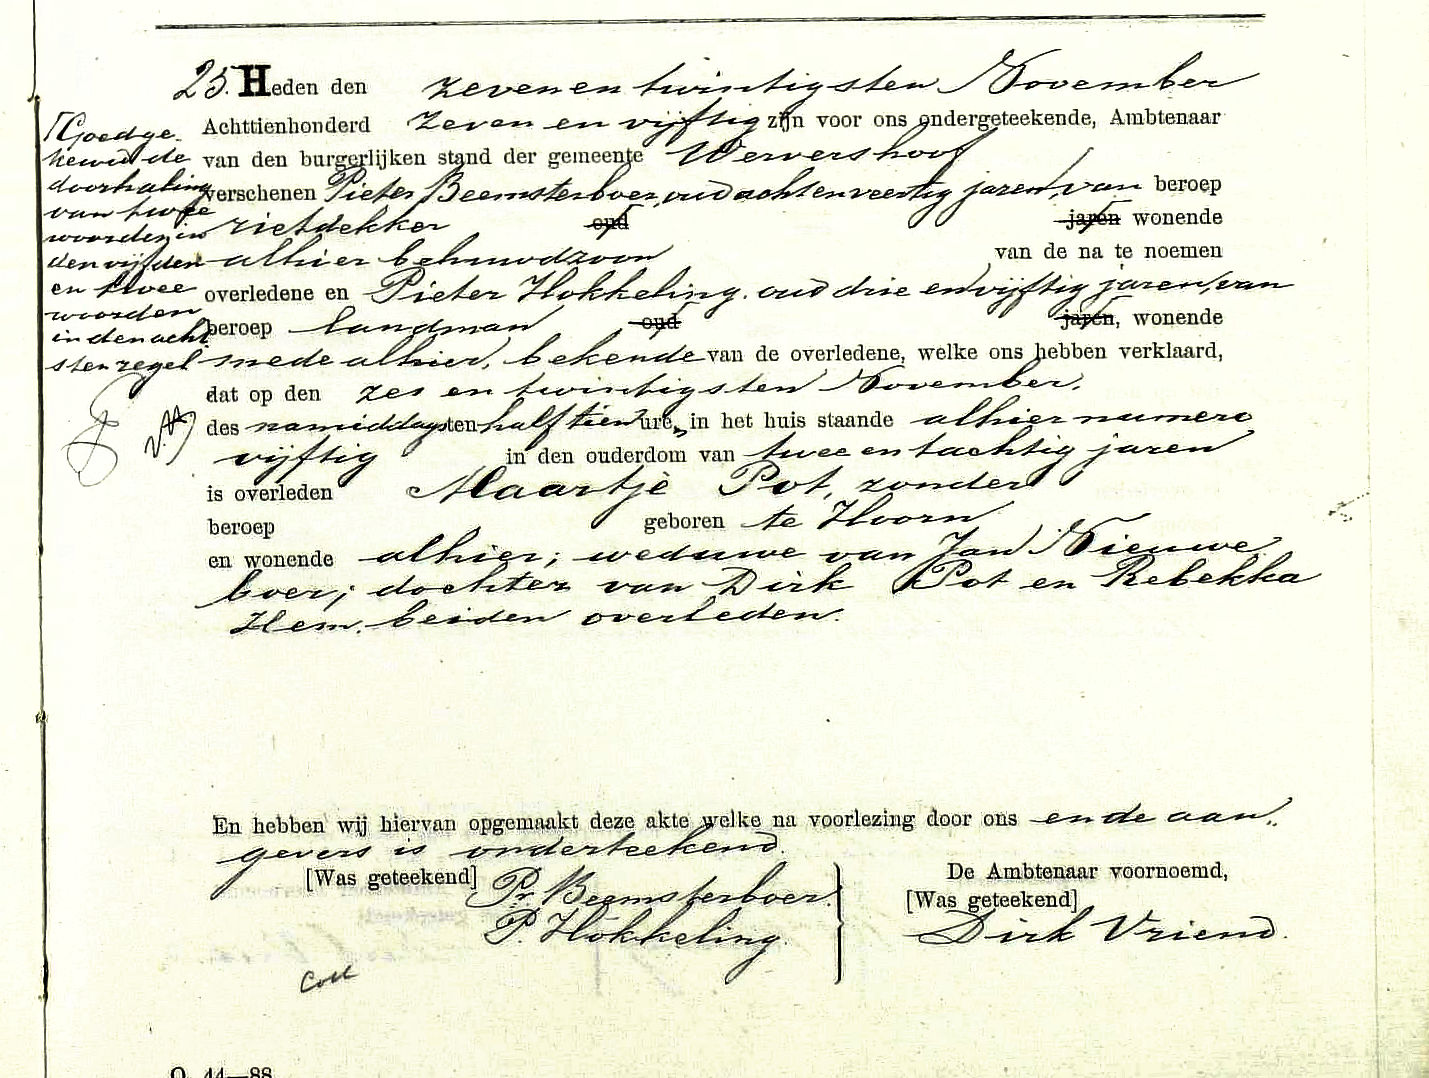 25. Heden den zeven en twintigsten November
Achttienhonderd zeven en vijftig zijn voor ons ondergeteekende, Ambtenaar
van den burgerlijken stand der gemeente Wervershoof
verschenen Pieter Beemsterboer, oud acht en veertig jaren, van beroep
rietdekker oud jaren wonende
alhier behuwdzoon van de na te noemen
overledene en Pieter Hokkeling. oud drie en vijftig jaren, van
beroep landman oud jaren, wonende
mede alhier, bekende van de overledene, welke ons hebben verklaard,
dat op den zes en twintigsten November,
des namiddags ten half tien ure, in het huis staande alhier numero
vijftig in den ouderdom van twee en tachtig jaren
is overleden Maartje Pot, zonder
beroep geboren te Hoorn
en wonende alhier; weduwe van Jan Nieuwe
boer; dochter van Dirk Pot en Rebekka
Hem. beiden overleden.
Goedge
keurd de
doorhaling
van twee
woorden in
den vijfden
en twee
woorden
in den acht
sten regel
En hebben wij hiervan opgemaakt deze akte welke na voorlezing door ons en de aan„
gevers is onderteekend.
[Was geteekend] Pr. Beemsterboer.
P. Hokkeling.
De Ambtenaar voornoemd,
[Was geteekend]
Dirk Vriend.
Coll
O. 44—88